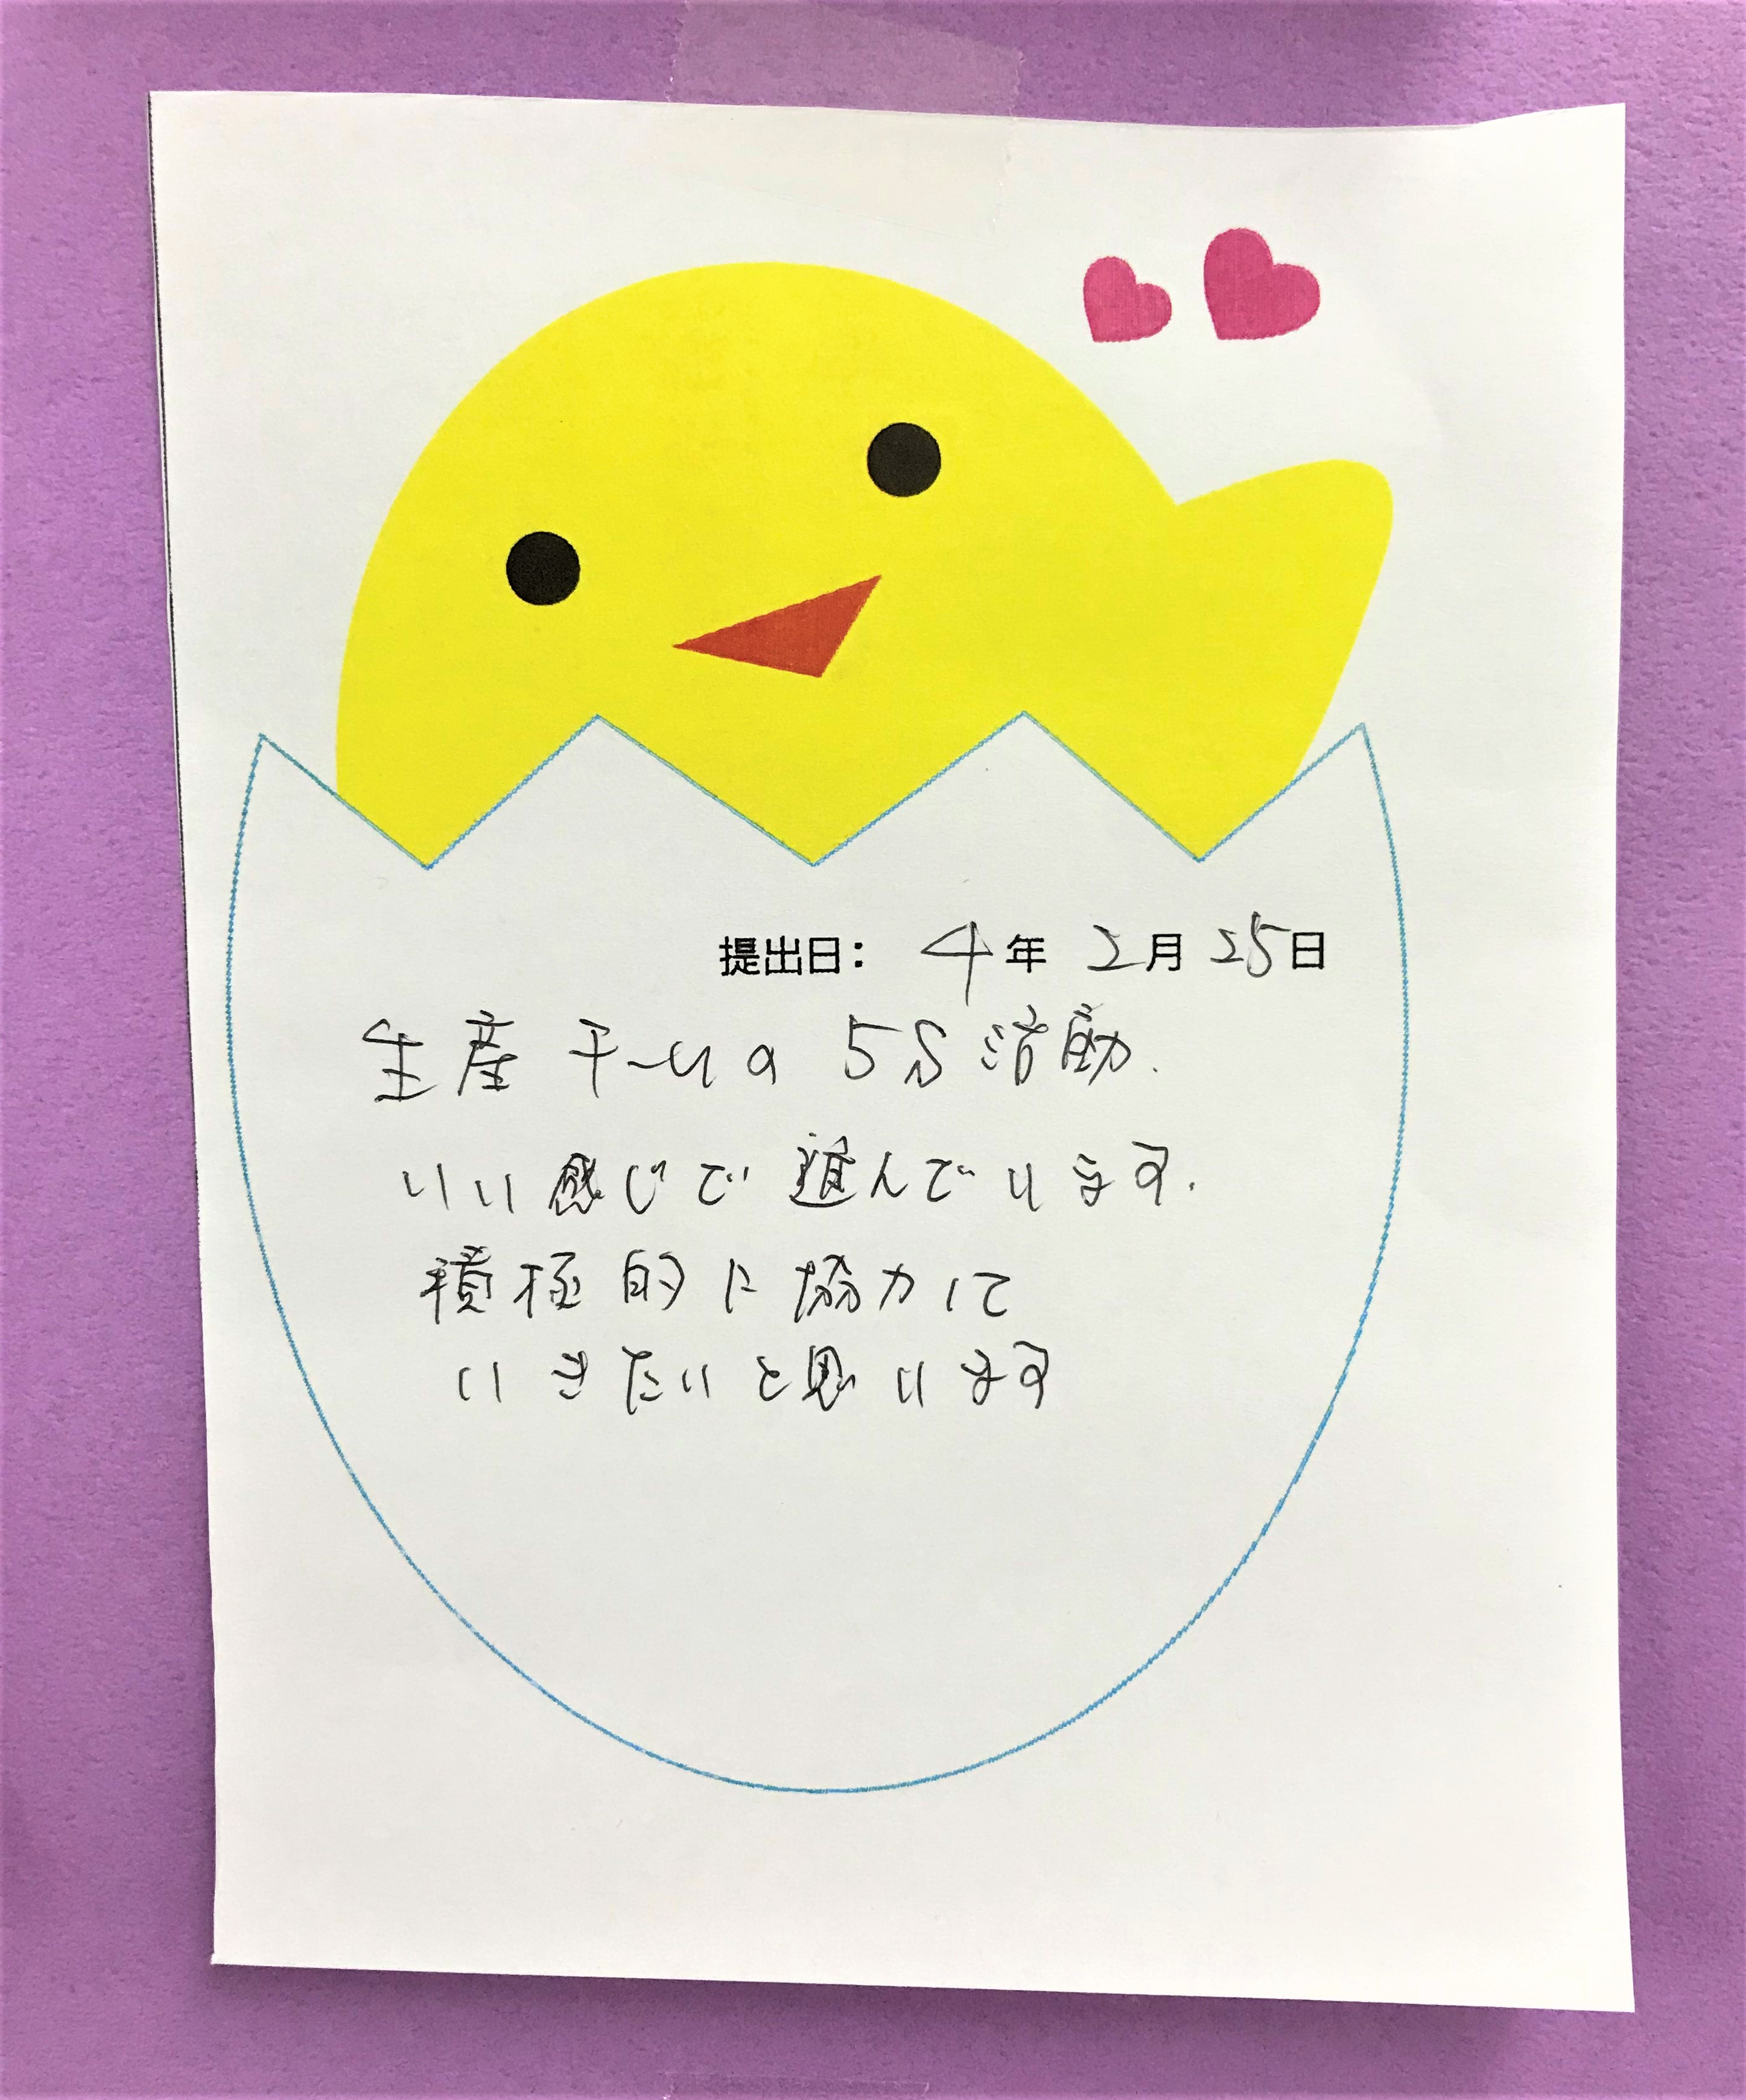 提出日: 4年 2月 25日
生産チームの5S活動.
いい感じで進んでいます.
積極的に協力して
いきたいと思います